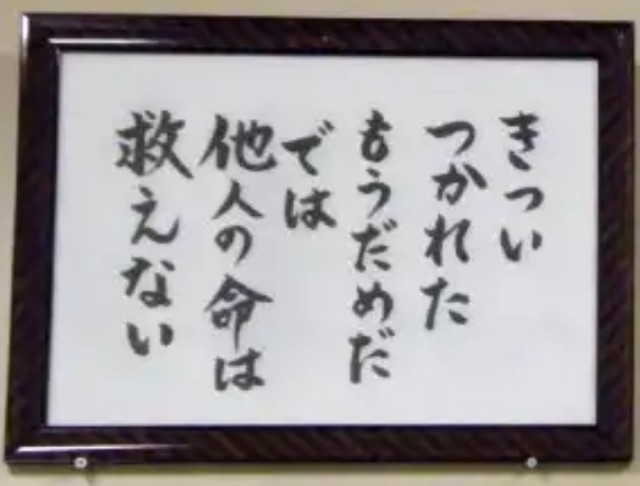 きつい
つかれた
もうだめだ
では
他人の命は
救えない